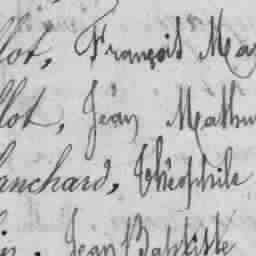 llot, François Ma
llot, Jean Mathu
lanchard, Théophile
Jean Baptiste